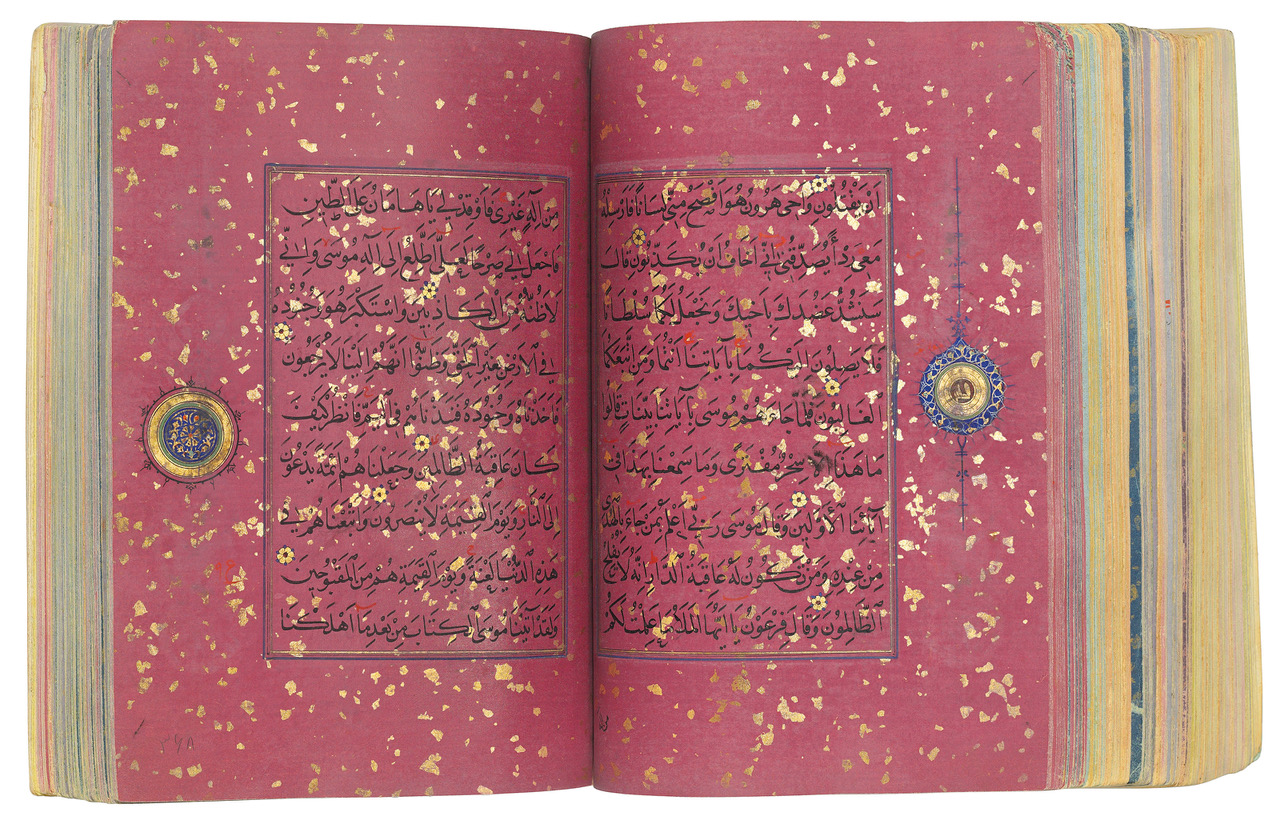 أَنْ يَقْتُلُونِ وَأَخِي هٰرُونُ هُوَ أَفْصَحُ مِنِّي لِسَانًا فَأَرْسِلْهُ
مَعِيَ رِدْءًا يُصَدِّقُنِي إِنِّي أَخَافُ أَنْ يُكَذِّبُونِ قَالَ
سَنَشُدُّ عَضُدَكَ بِأَخِيكَ وَنَجْعَلُ لَكُمَا سُلْطَانًا
فَلَا يَصِلُونَ إِلَيْكُمَا بِآيَاتِنَا أَنْتُمَا وَمَنِ اتَّبَعَكُمَا
الْغَالِبُونَ فَلَمَّا جَاءَهُمْ مُوسَى بِآيَاتِنَا بَيِّنَاتٍ قَالُوا
مَا هَذَا إِلَّا سِحْرٌ مُفْتَرًى وَمَا سَمِعْنَا بِهَذَا فِي
آبَائِنَا الْأَوَّلِينَ وَقَالَ مُوسَى رَبِّي أَعْلَمُ بِمَنْ جَاءَ بِالْهُدَى
مِنْ عِنْدِهِ وَمَنْ تَكُونُ لَهُ عَاقِبَةُ الدَّارِ إِنَّهُ لَا يُفْلِحُ
الظَّالِمُونَ وَقَالَ فِرْعَوْنُ يَا أَيُّهَا الْمَلَأُ مَا عَلِمْتُ لَكُمْ
مِنْ إِلَهٍ غَيْرِي فَأَوْقِدْ لِي يَا هَامَانُ عَلَى الطِّينِ
فَاجْعَلْ لِي صَرْحًا لَعَلِّي أَطَّلِعُ إِلَى إِلَهِ مُوسَى وَإِنِّي
لَأَظُنُّهُ مِنَ الْكَاذِبِينَ وَاسْتَكْبَرَ هُوَ وَجُنُودُهُ
فِي الْأَرْضِ بِغَيْرِ الْحَقِّ وَظَنُّوا أَنَّهُمْ إِلَيْنَا لَا يُرْجَعُونَ
فَأَخَذْنَاهُ وَجُنُودَهُ فَنَبَذْنَاهُمْ فِي الْيَمِّ فَانْظُرْ كَيْفَ
كَانَ عَاقِبَةُ الظَّالِمِينَ وَجَعَلْنَاهُمْ أَئِمَّةً يَدْعُونَ
إِلَى النَّارِ وَيَوْمَ الْقِيٰمَةِ لَا يُنْصَرُونَ وَأَتْبَعْنَاهُمْ فِي
هَذِهِ الدُّنْيَا لَعْنَةً وَيَوْمَ الْقِيٰمَةِ هُمْ مِنَ الْمَقْبُوحِينَ
وَلَقَدْ آتَيْنَا مُوسَى الْكِتَابَ مِنْ بَعْدِ مَا أَهْلَكْنَا